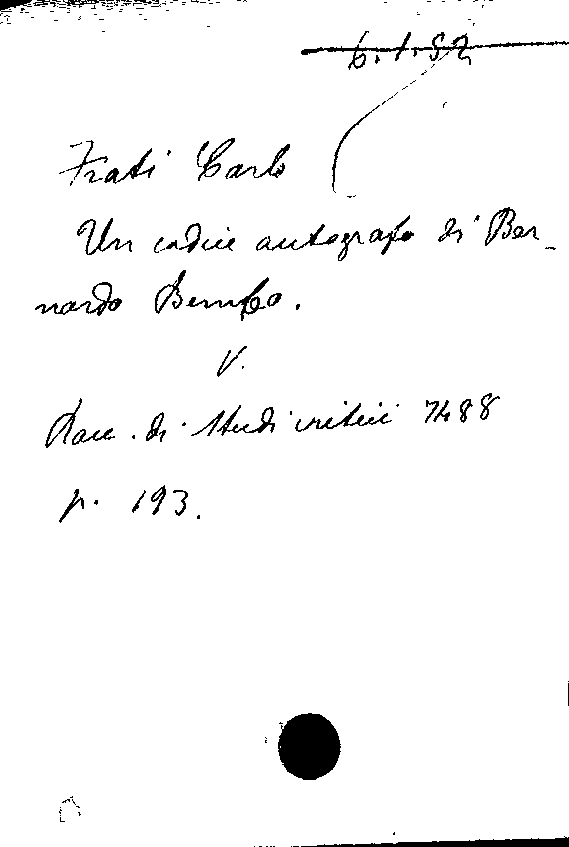 6.1.52
Frati Carlo
Un codice autografo di Ber_
nardo Bembo.
V.
Racc. di Studi critici 7488
p. 193.